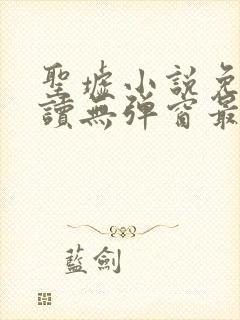 聖墟小説免
讀無彈窗最
藍劍